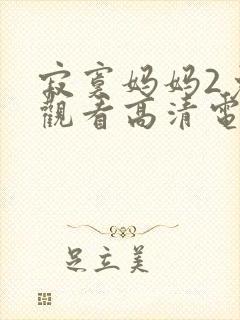 寂寞妈妈2
觀看高清電
足立美